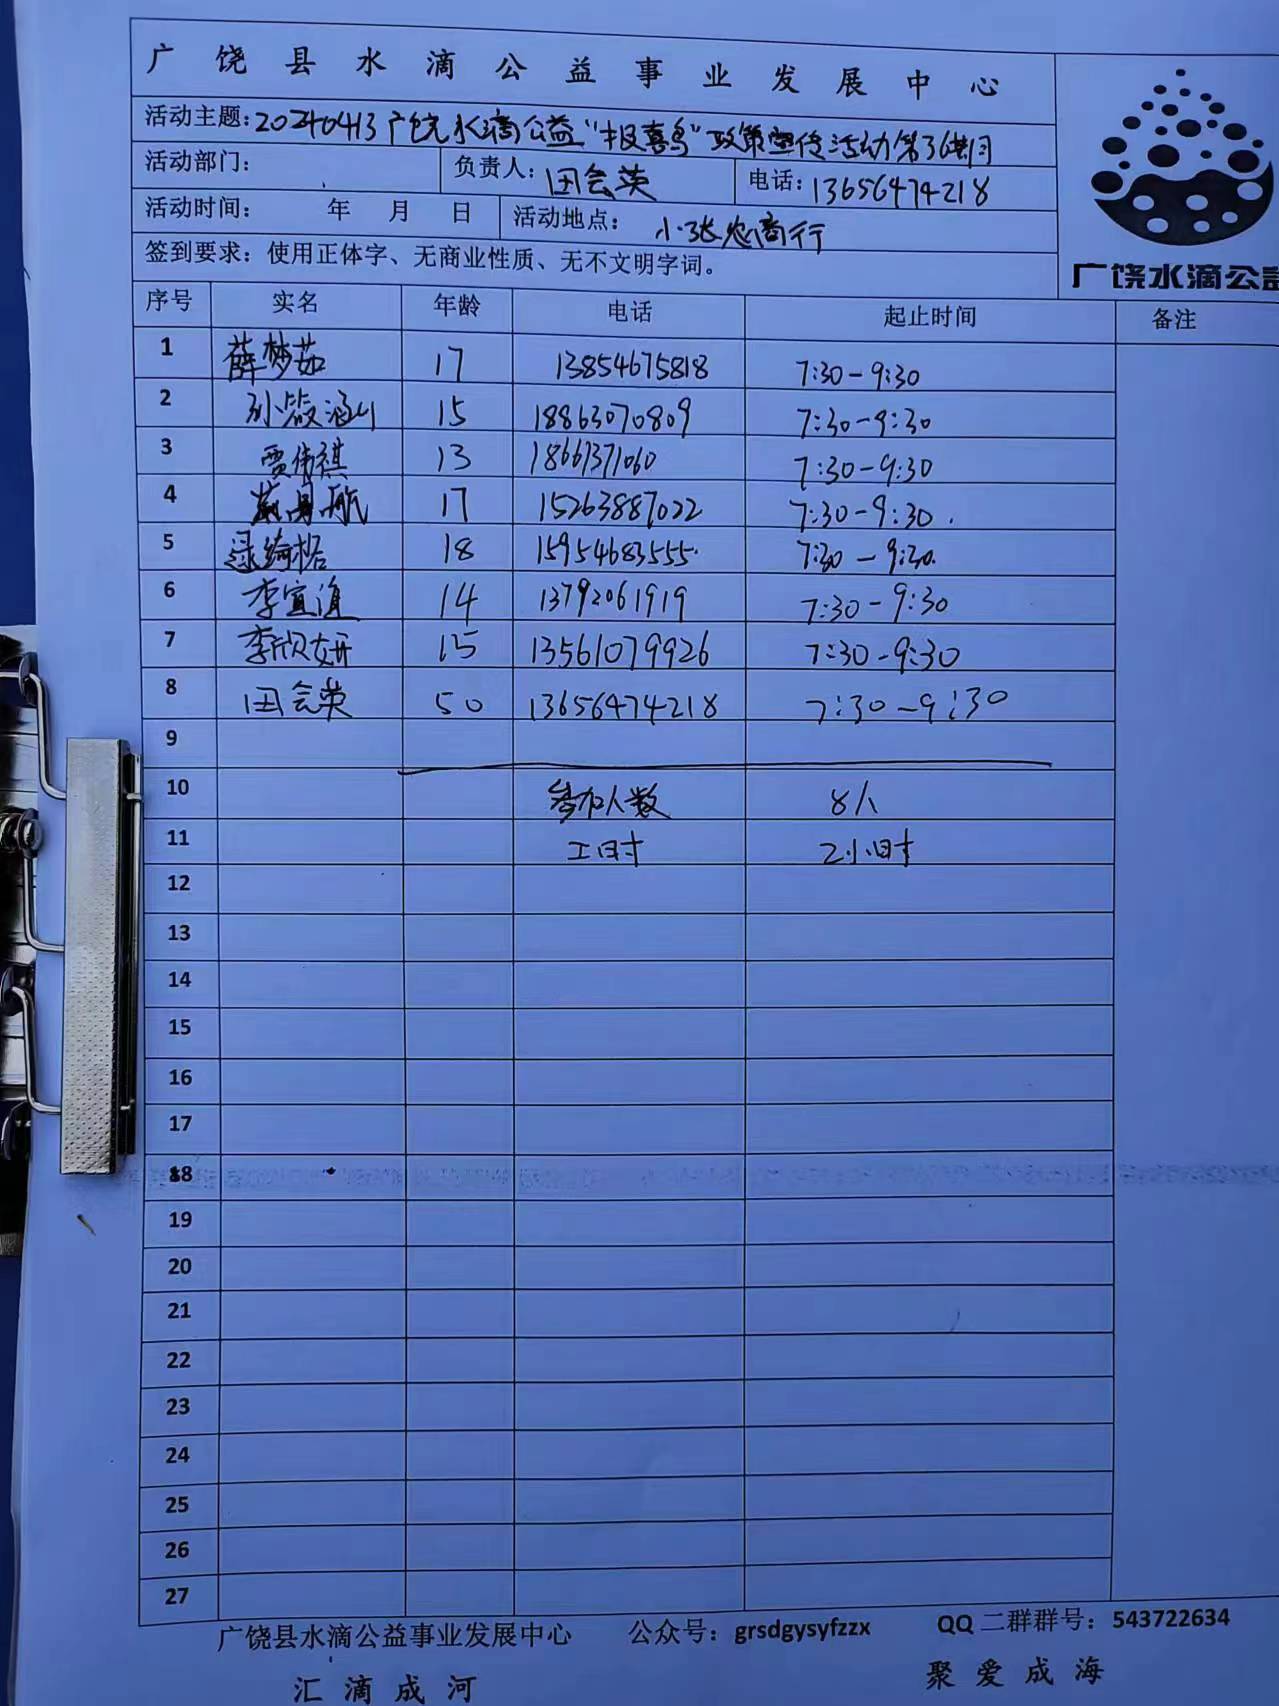 广饶县水滴公益事业发展中心
活动主题:20240413广饶水滴公益"报喜鸟"政策宣传活动第36期
活动部门: 负责人:田会英 电话:13656474218
活动时间: 年 月 日 活动地点: 小张农商行
签到要求:使用正体字、无商业性质、无不文明字词。
广饶水滴公益
序号 实名 年龄 电话 起止时间 备注
1 薛梦茹 17 13854675818 7:30-9:30
2 孙筱涵 15 18863070809 7:30-9:30
3 贾传祺 13 18661371060 7:30-9:30
4 航 17 15263887022 7:30-9:30
5 绮格 18 15954683555 7:30-9:30
6 李宜 14 13792061919 7:30-9:30
7 李欣妍 15 13561079926 7:30-9:30
8 田会英 50 13656474218 7:30-9:30
9
10 参加人数 8人
11 工时 2小时
12
13
14
15
16
17
18
19
20
21
22
23
24
25
26
27
广饶县水滴公益事业发展中心 公众号:grsdgysyfzzx QQ二群群号:543722634
汇滴成河 聚爱成海